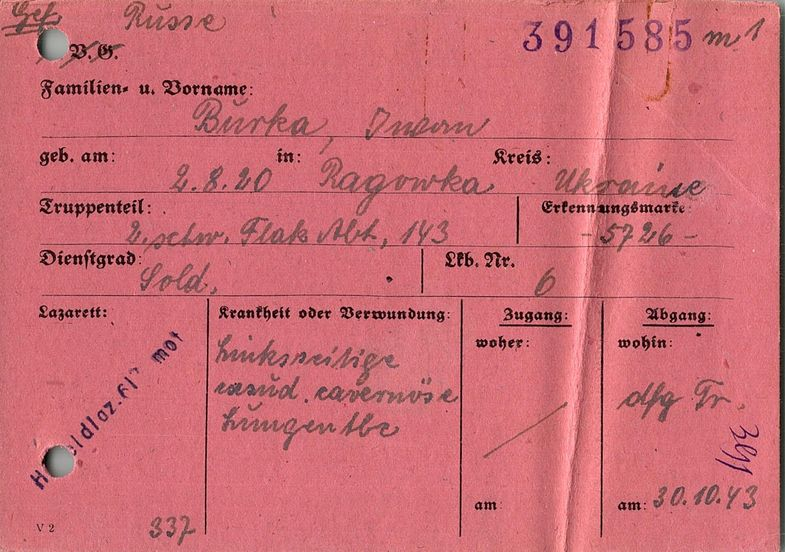 Gef. Russe
391585 m 1
V.G.
Familien- u. Vorname:
Burka, Iwan
geb. am: in: Kreis:
2.8.20 Ragowka Ukraine
Truppenteil: Erkennungsmarke:
2. schw. Flak Abt, 143 -5726-
Dienstgrad: Lkb. Nr.
Sold. 6
Lazarett: Krankheit oder Verwundung: Zugang: Abgang:
woher: wohin:
Linksseitige
exsud. cavernöse
Lungen tbc
dfg Tr.
mot
am: am: 30.10.43
V 2 337